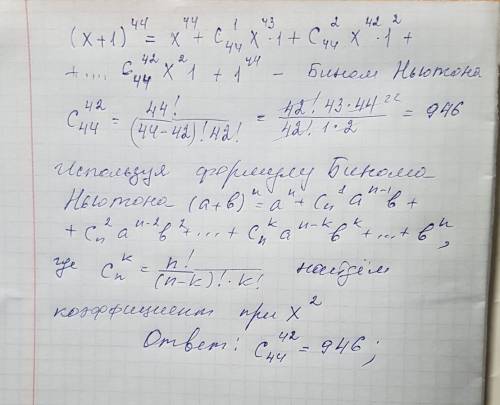 (x+1)^44 = x^44 + C_44^1 x^43 · 1 + C_44^2 x^42 · 1^2 +
+ .... C_44^42 x^2 1 + 1^44 - Бином Ньютона
C_44^42 = 44! / (44-42)! 42! = 42! 43·44 22 / 42! 1·2 = 946
Используя формулу Бинома
Ньютона (a+в)^n = a^n + C_n^1 a^n-1 в +
+ C_n^2 a^n-2 в^2 + ... + C_n^k a^n-k в^k + ... + в^n,
где C_n^k = n! / (n-k)! · k! найдём
коэффициент при x^2
Ответ: C_44^42 = 946;